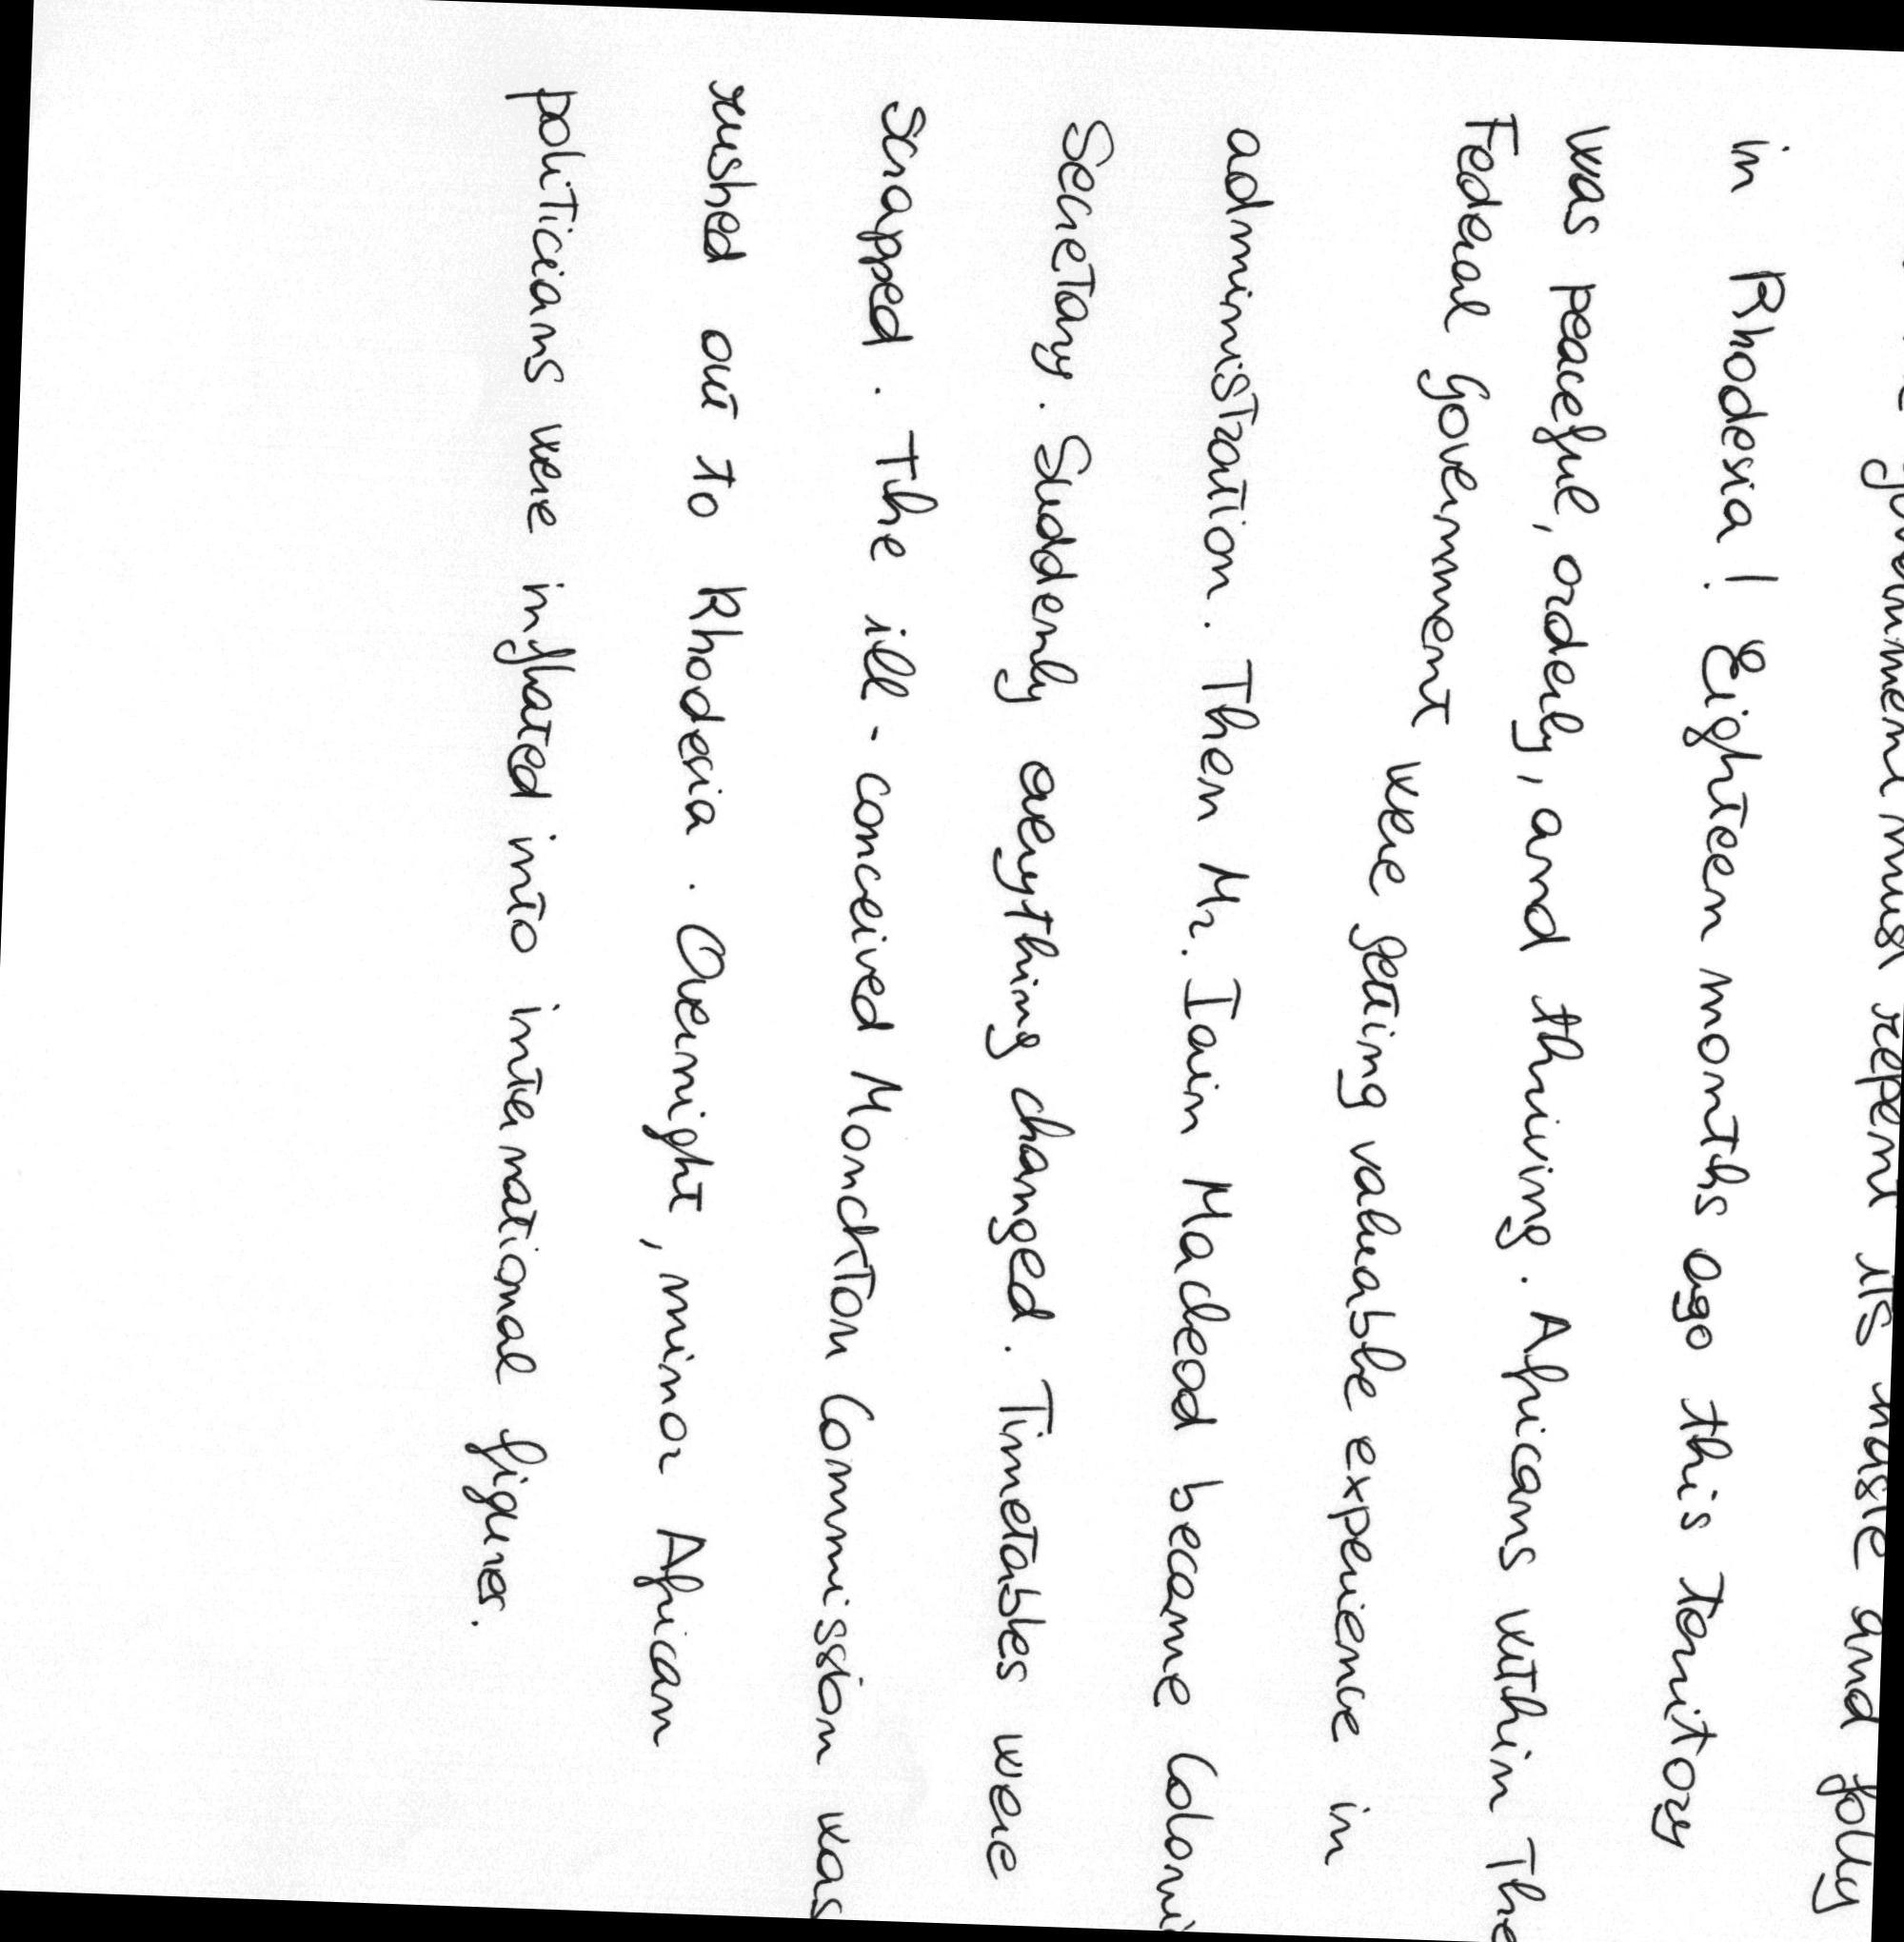 government must repent its haste and folly
in Rhodesia! Eighteen months ago this territory
was peaceful, orderly, and thriving. Africans within the
Federal Government were getting valuable experience in
administration. Then Mr. Iain Macleod became Coloni
Secretary. Suddenly everything changed. Timetables were
scrapped. The ill-conceived Monckton Commission was
rushed out to Rhodesia. Overnight, minor African
politicians were inflated into international figures.